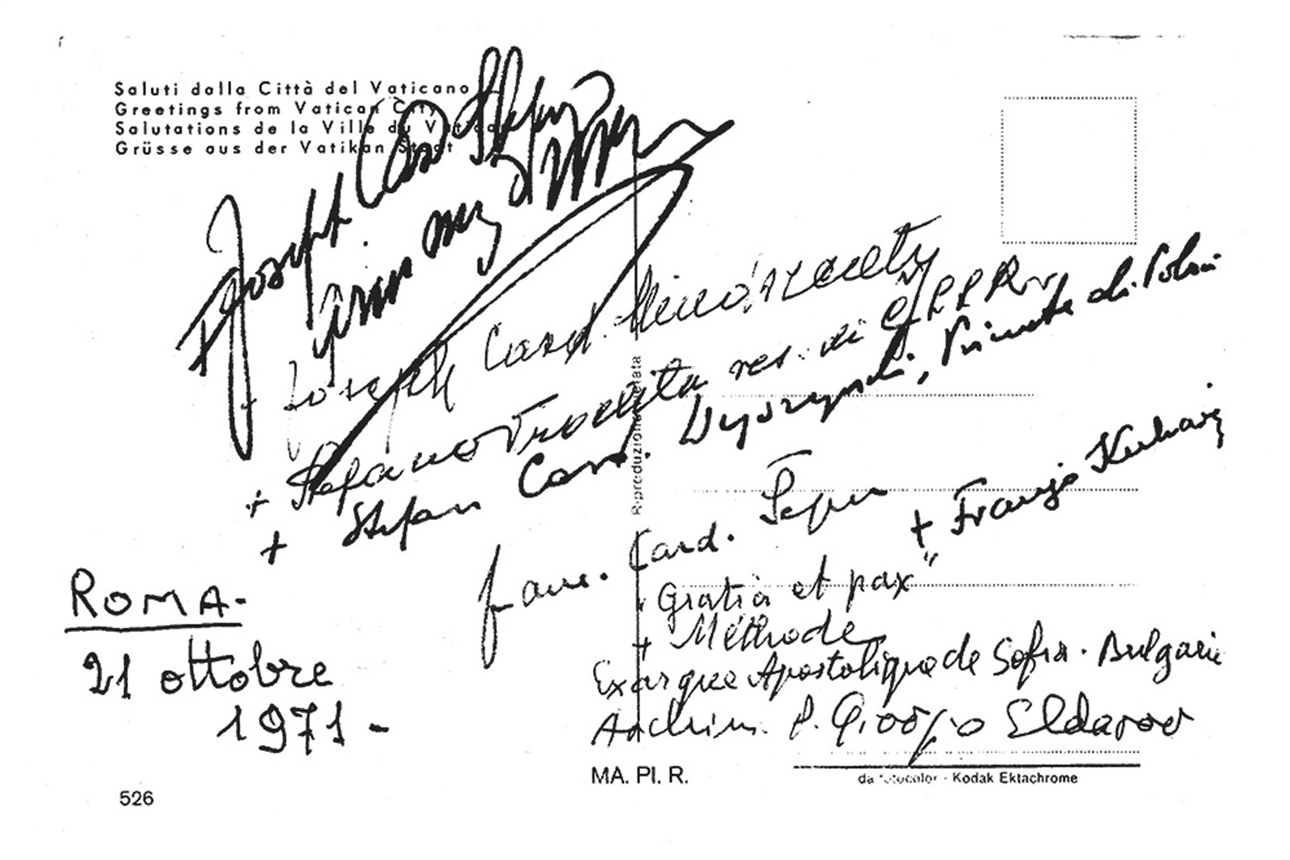 Saluti dalla Città del Vaticano
Greetings from Vatican City
Salutations de la Ville du Vatican
Grüsse aus der Vatikan Staat
+ Joseph Card
+ Joseph Card. Mindszenty
+ Stefano Trochta res. di
+ Stefan Card. Wyszyński, Primate di Polonia
Franc. Card. Šeper
+ Franjo Kuharić
"Gratia et pax"
+ Méthode
Exarque Apostolique de Sofia - Bulgarie
Archim. P. Giorgio Eldarov
ROMA -
21 ottobre
1971 -
Riproduzione vietata
MA. PI. R.
da fotocolor - Kodak Ektachrome
526